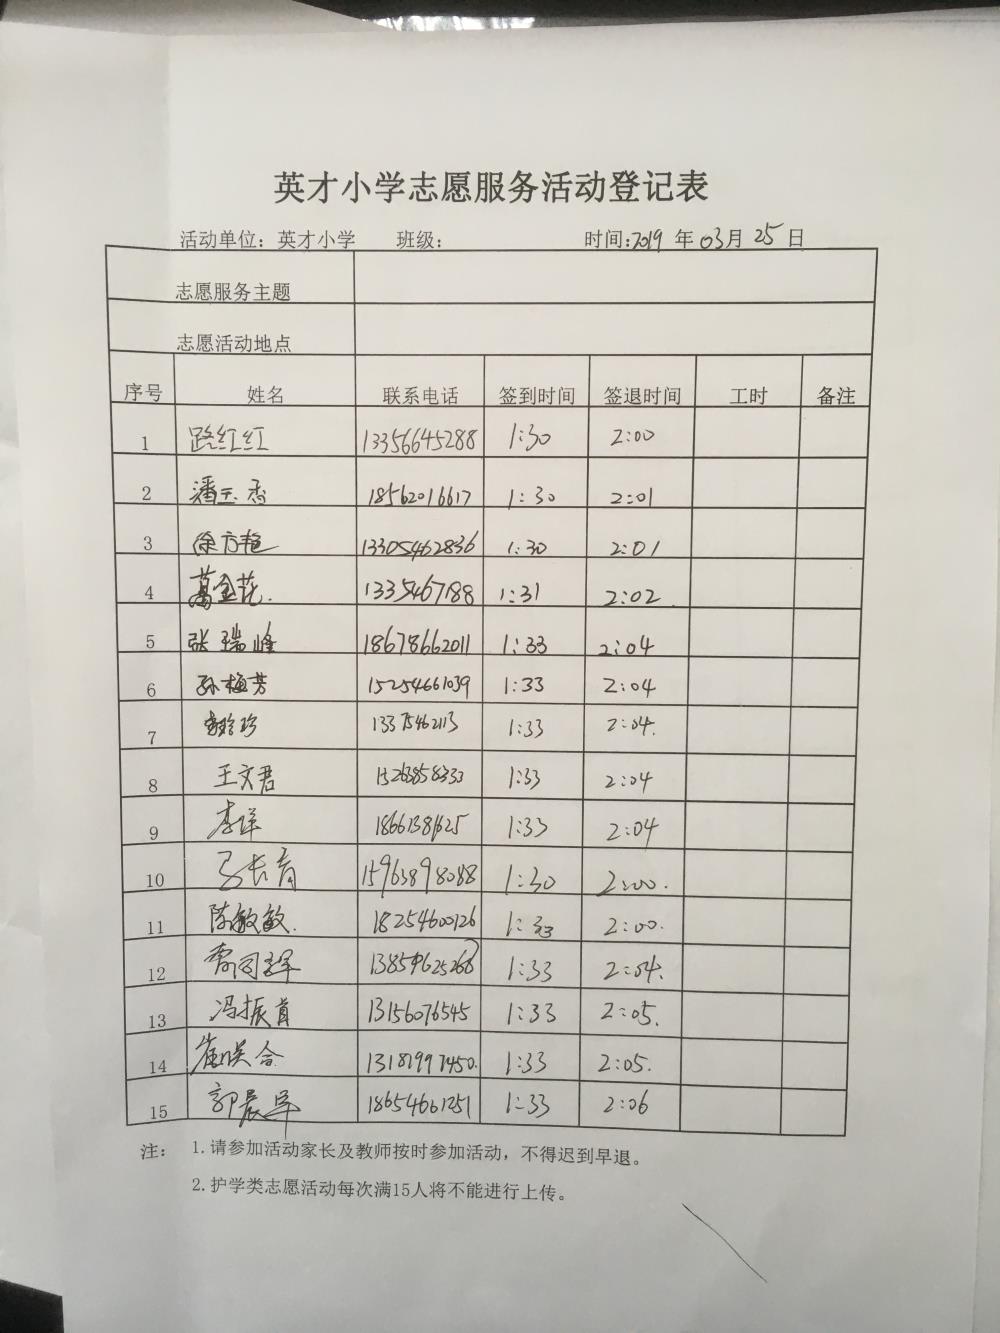 英才小学志愿服务活动登记表
活动单位：英才小学 班级： 时间：2019 年 03月 25 日
志愿服务主题
志愿活动地点
序号 姓名 联系电话 签到时间 签退时间 工时 备注
1 路红红 13356645288 1:30 2:00
2 潘玉香 18562016617 1:30 2:01
3 徐方艳 13305462836 1:30 2:01
4 葛金花. 1335467188 1:31 2:02
5 张瑞峰 18678662011 1:33 2:04
6 孙梅芳 15254661039 1:33 2:04
7 13375462113 1:33 2:04.
8 王文君 15263858333 1:33 2:04
9 李洋 1:33 2:04
10 马长青 15963898088 1:30 2:00.
11 陈敏敏. 18254600126 1:33 2:00.
12 13854625268 1:33 2:04.
13 冯振首 13156076545 1:33 2:05.
14 崔合 13181997450. 1:33 2:05.
15 郭晨军 18654661251 1:33 2:06
注： 1.请参加活动家长及教师按时参加活动，不得迟到早退。
2.护学类志愿活动每次满15人将不能进行上传。